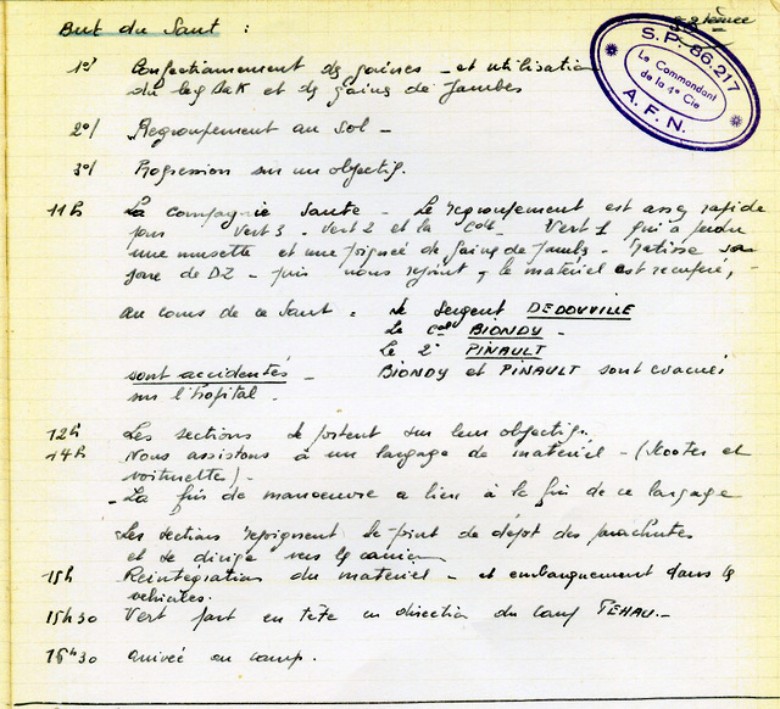 But du Saut :
S.P. 86.217
Le Commandant
de la 4e Cie
A. F. N.
1°/ Confectionnement des gaines - et utilisation
du leg bak et des gaines de jambes
2°/ Regroupement au sol -
3°/ Progression sur un objectif.
11h La compagnie saute - Le regroupement est assez rapide
pour Vert 3 - Vert 2 et la Cdt - Vert 1 qui a perdu
une musette et une poignée de gaines de jambes - ratisse sa
zone de DZ - puis nous rejoint, le matériel est récupéré, -
au cours de ce saut : le Sergent DEDOUVILLE
Le cal BIONDY -
Le 2° PINAULT
sont accidentés - BIONDY et PINAULT sont évacués
sur l'hopital -
12h Les sections se portent sur leur objectif.
14h Nous assistons à un largage de matériel - (Scooter et
voiturette) -
- La fin de manoeuvre a lieu à la fin de ce largage
Les sections rejoignent le point de dépot des parachutes
et se dirige vers les camions
15h Réintégration du matériel - et embarquement dans les
véhicules.
15h30 Vert part en tête en direction du camp TEHAU.-
16h30 arrivée au camp.